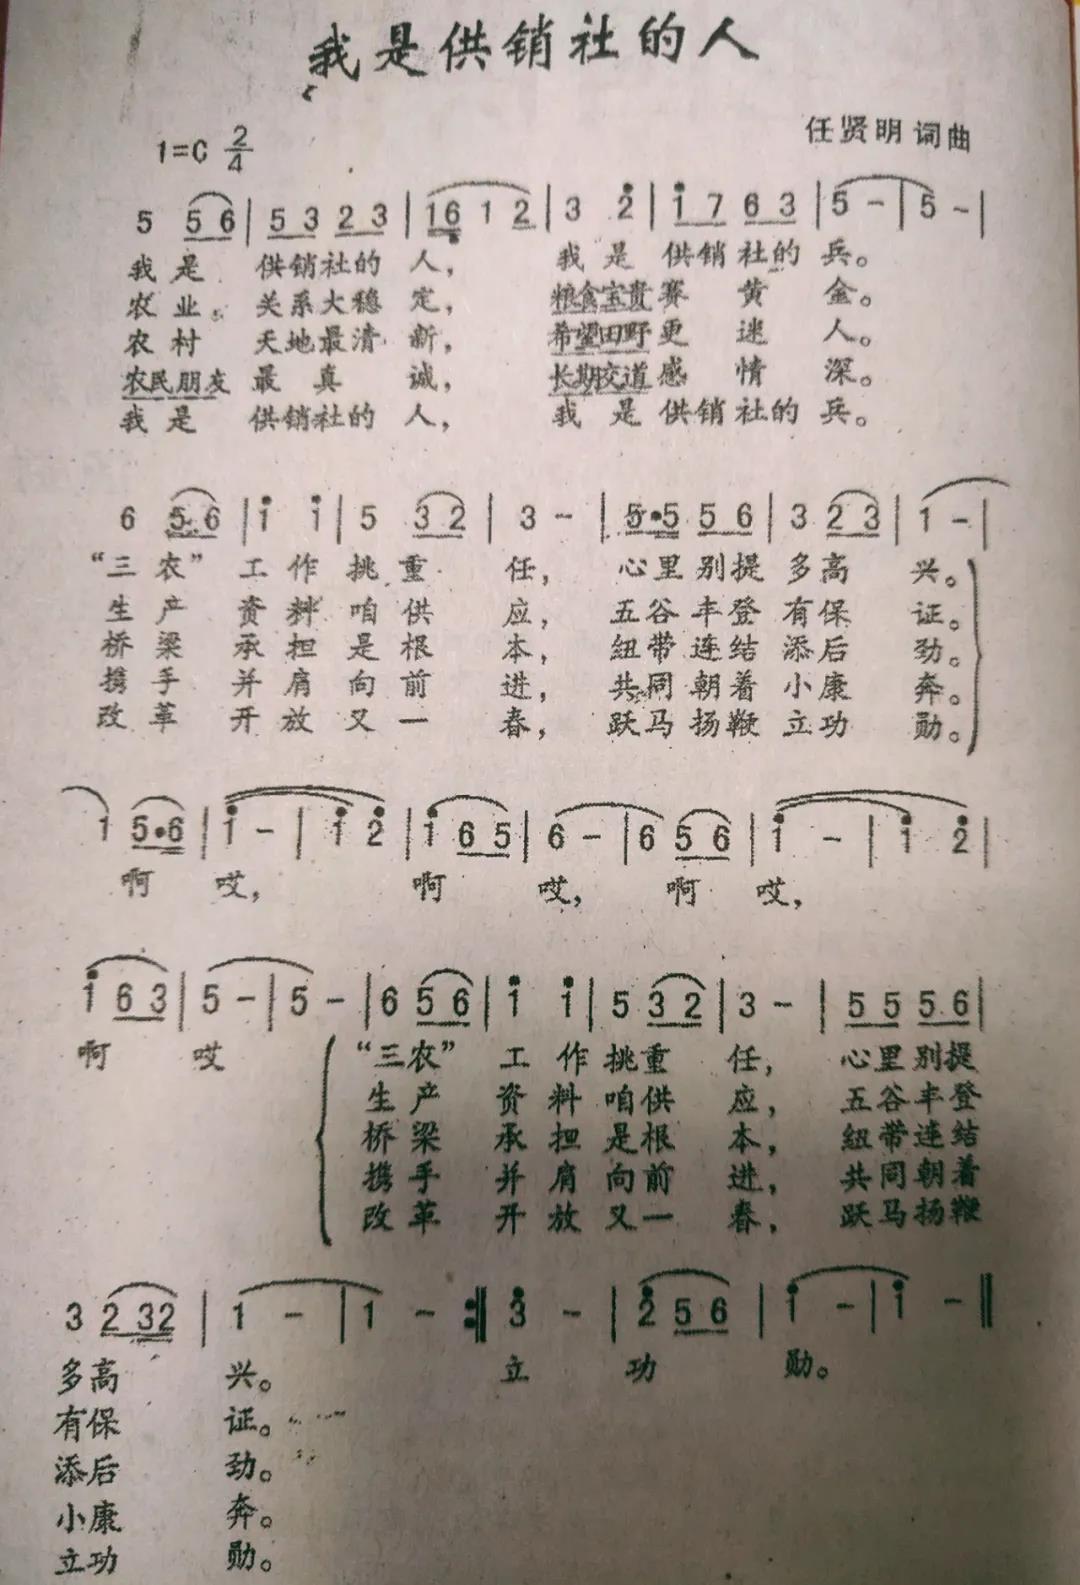 我是供销社的人
1=C 2/4
任贤明 词曲
5 5 6 | 5 3 2 3 | 1 6 1 2 | 3 2̇ | 1̇ 7 6 3 | 5 - | 5 - |
我是 供销社的 人， 我是 供销社的 兵。
农业 关系大稳 定， 粮食宝贵赛 黄 金。
农村 天地最清 新， 希望田野更 迷 人。
农民朋友 最真 诚， 长期交道感 情 深。
我是 供销社的 人， 我是 供销社的 兵。
6 5 6 | 1̇ 1̇ | 5 3 2 | 3 - | 5·5 5 6 | 3 2 3 | 1 - |
“三农” 工作 挑重 任， 心里别提 多高 兴。
生产 资料 咱供 应， 五谷丰登 有保 证。
桥梁 承担 是根 本， 纽带连结 添后 劲。
携手 并肩 向前 进， 共同朝着 小康 奔。
改革 开放 又一 春， 跃马扬鞭 立功 勋。
1 5·6 | 1̇ - | 1̇ 2̇ | 1̇ 6 5 | 6 - | 6 5 6 | 1̇ - | 1̇ 2̇ |
啊 哎， 啊 哎， 啊 哎，
1̇ 6 3 | 5 - | 5 - | 6 5 6 | 1̇ 1̇ | 5 3 2 | 3 - | 5 5 5 6 |
啊 哎 “三农” 工作 挑重 任， 心里别提
生产 资料 咱供 应， 五谷丰登
桥梁 承担 是根 本， 纽带连结
携手 并肩 向前 进， 共同朝着
改革 开放 又一 春， 跃马扬鞭
3 2 3 2 | 1 - | 1 - :‖ 3̇ - | 2̇ 5 6 | 1̇ - | 1̇ - ‖
多高 兴。 立 功 勋。
有保 证。
添后 劲。
小康 奔。
立功 勋。